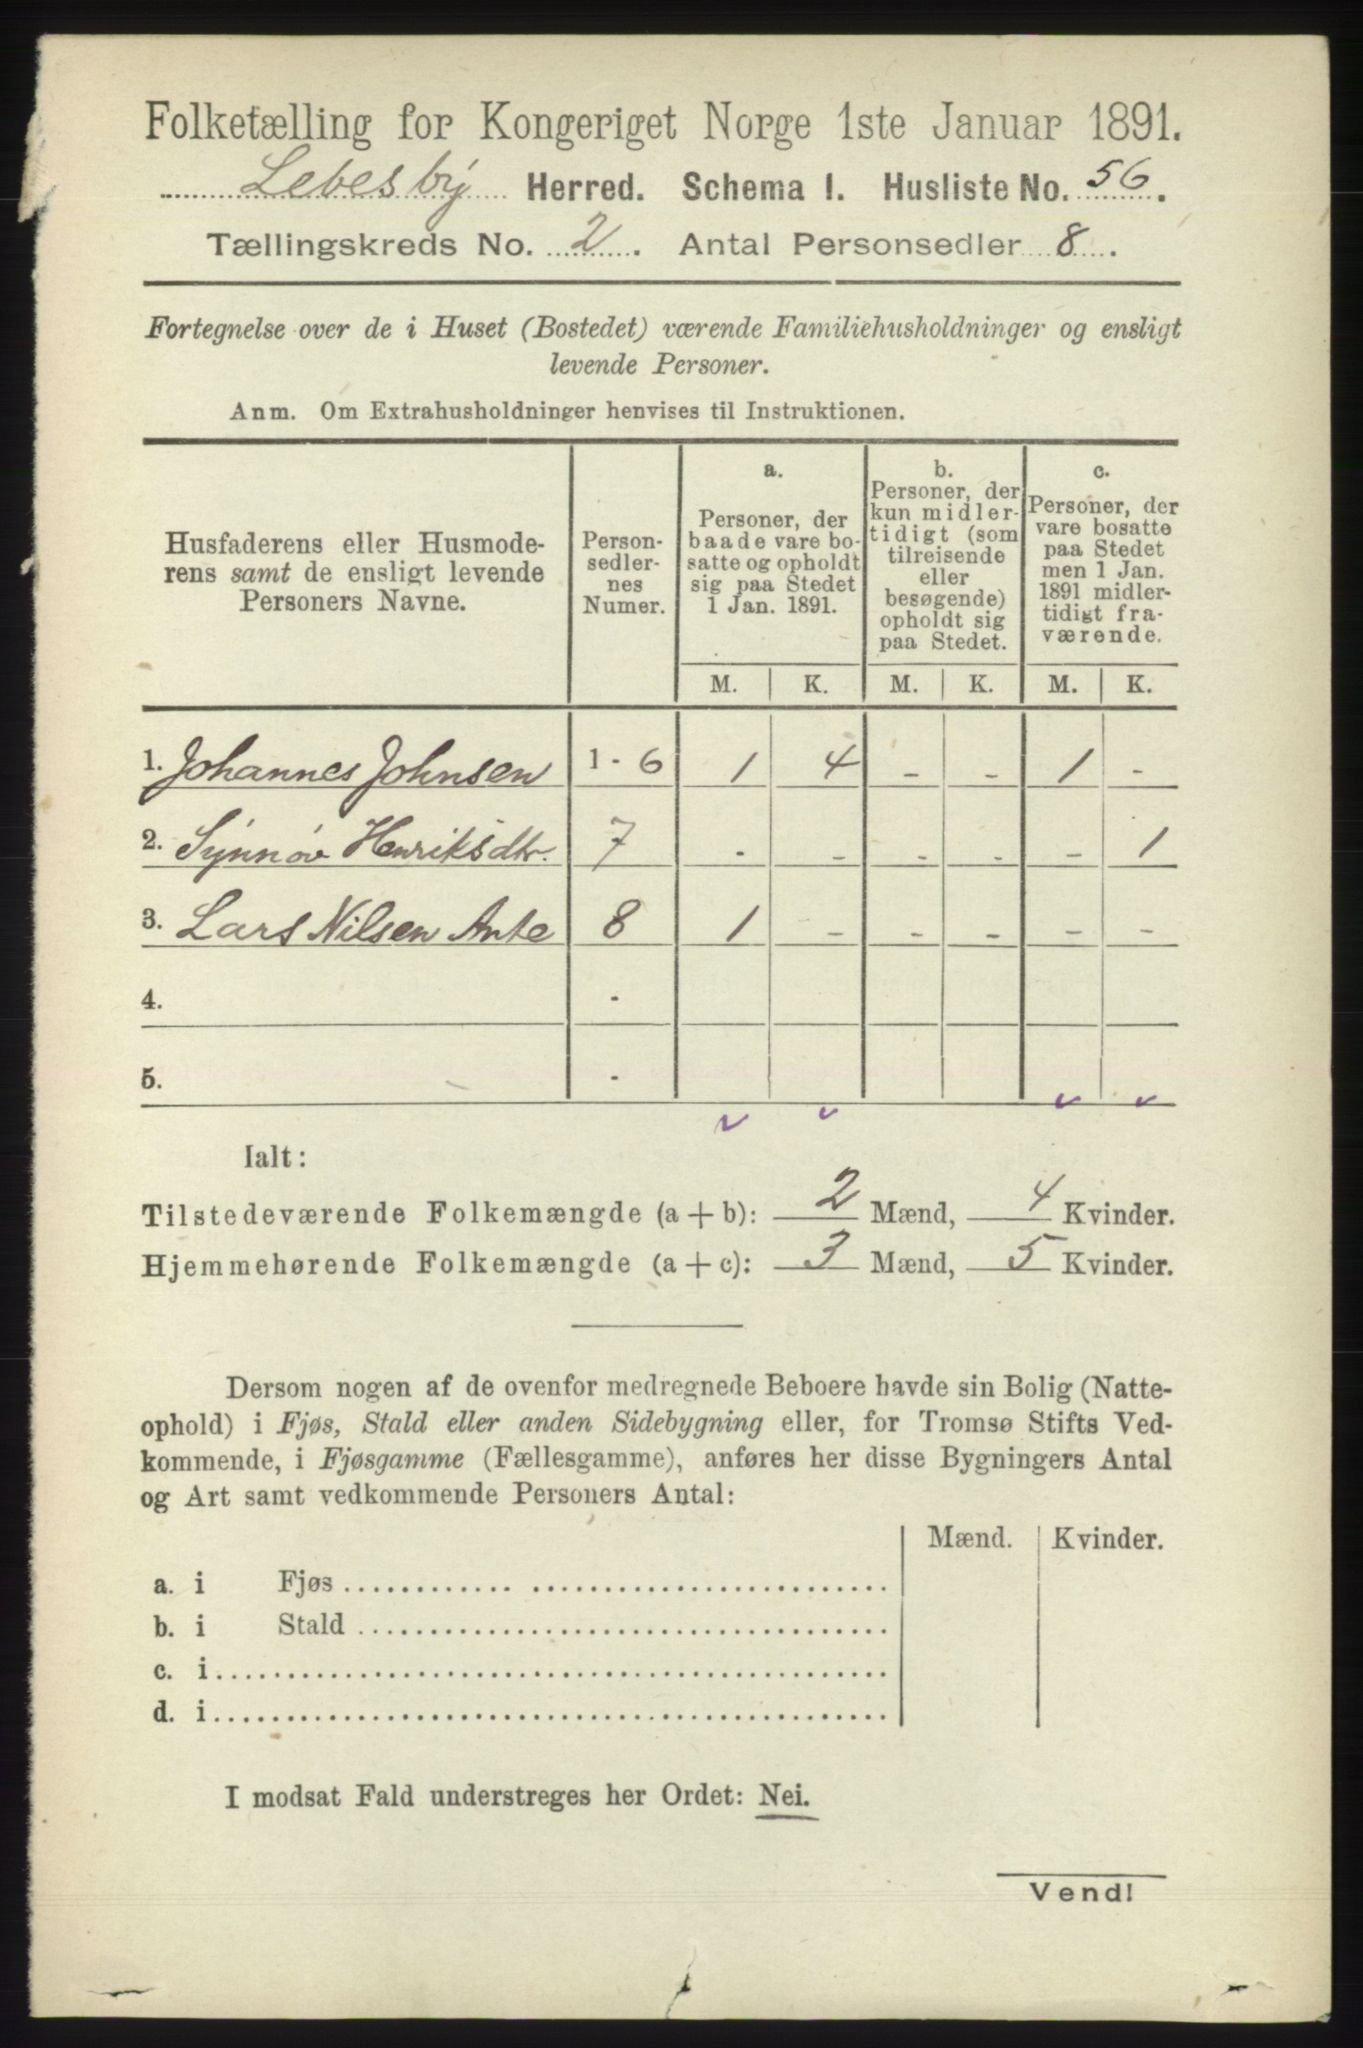 Folketælling for Kongeriget Norge 1ste Januar 1891.
Lebesby Herred. Schema I. Husliste No. 56.
Tællingskreds No. 2. Antal Personsedler 8.
Fortegnelse over de i Huset (Bostedet) værende Familiehusholdninger og ensligt
levende Personer.
Anm. Om Extrahusholdninger henvises til Instruktionen.
Husfaderens eller Husmode-
rens samt de ensligt levende
Personers Navne.
Person-
sedler-
nes
Numer.
a.
Personer, der
baade vare bo-
satte og opholdt
sig paa Stedet
1 Jan. 1891.
b.
Personer, der
kun midler-
tidigt (som
tilreisende
eller
besøgende)
opholdt sig
paa Stedet.
c.
Personer, der
vare bosatte
paa Stedet
men 1 Jan.
1891 midler-
tidigt fra-
værende.
M. K. M. K. M. K.
1. Johannes Johnsen 1 - 6 1 4 - - 1 -
2. Synnøv Henriksdtr. 7 - - - - - 1
3. Lars Nilsen Ante 8 1 - - - - -
4. -
5. -
Ialt:
Tilstedeværende Folkemængde (a + b): 2 Mænd, 4 Kvinder.
Hjemmehørende Folkemængde (a + c): 3 Mænd, 5 Kvinder.
Dersom nogen af de ovenfor medregnede Beboere havde sin Bolig (Natte-
ophold) i Fjøs, Stald eller anden Sidebygning eller, for Tromsø Stifts Ved-
kommende, i Fjøsgamme (Fællesgamme), anføres her disse Bygningers Antal
og Art samt vedkommende Personers Antal:
Mænd. Kvinder.
a. i Fjøs
b. i Stald
c. i
d. i
I modsat Fald understreges her Ordet: Nei.
Vend!